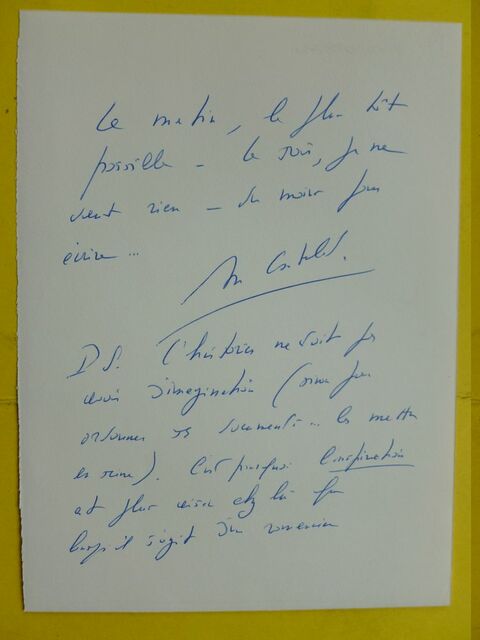 Le matin, le plus tôt
possible – le soir, je ne
vaut rien – du moins pour
écrire...
P.S. L'historien ne doit pas
avoir d'imagination (sinon pour
ordonner ses documents... les mettre
en scène). C'est pourquoi l'inspiration
est plus chez lui que
lorsqu'il s'agit d'un romancier